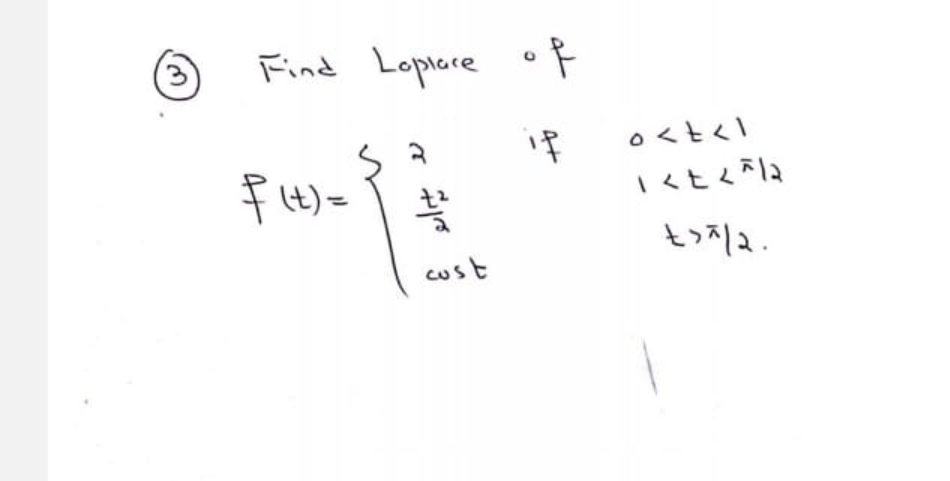 ③ Find Laplace of
f(t) = { 2 if 0 < t < 1
t²/2 1 < t < π/2
cost t > π/2.